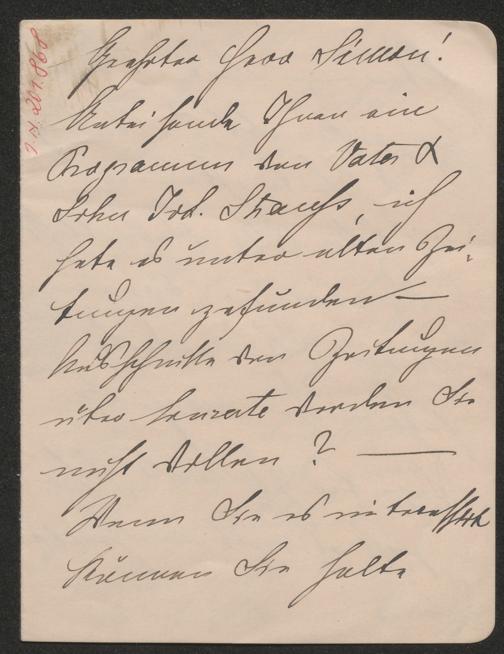 I.N. 201.868
Geehrter Herr Simon!
Anbei sende Ihnen ein
Programm von Vater &
Sohn Joh. Strauss, ich
habe es unter alten Zei-
tungen gefunden —
Ausschnitte von Zeitungen
über Conzerte werden Sie
nicht wollen? —
Wenn Sie es interessirt
können Sie